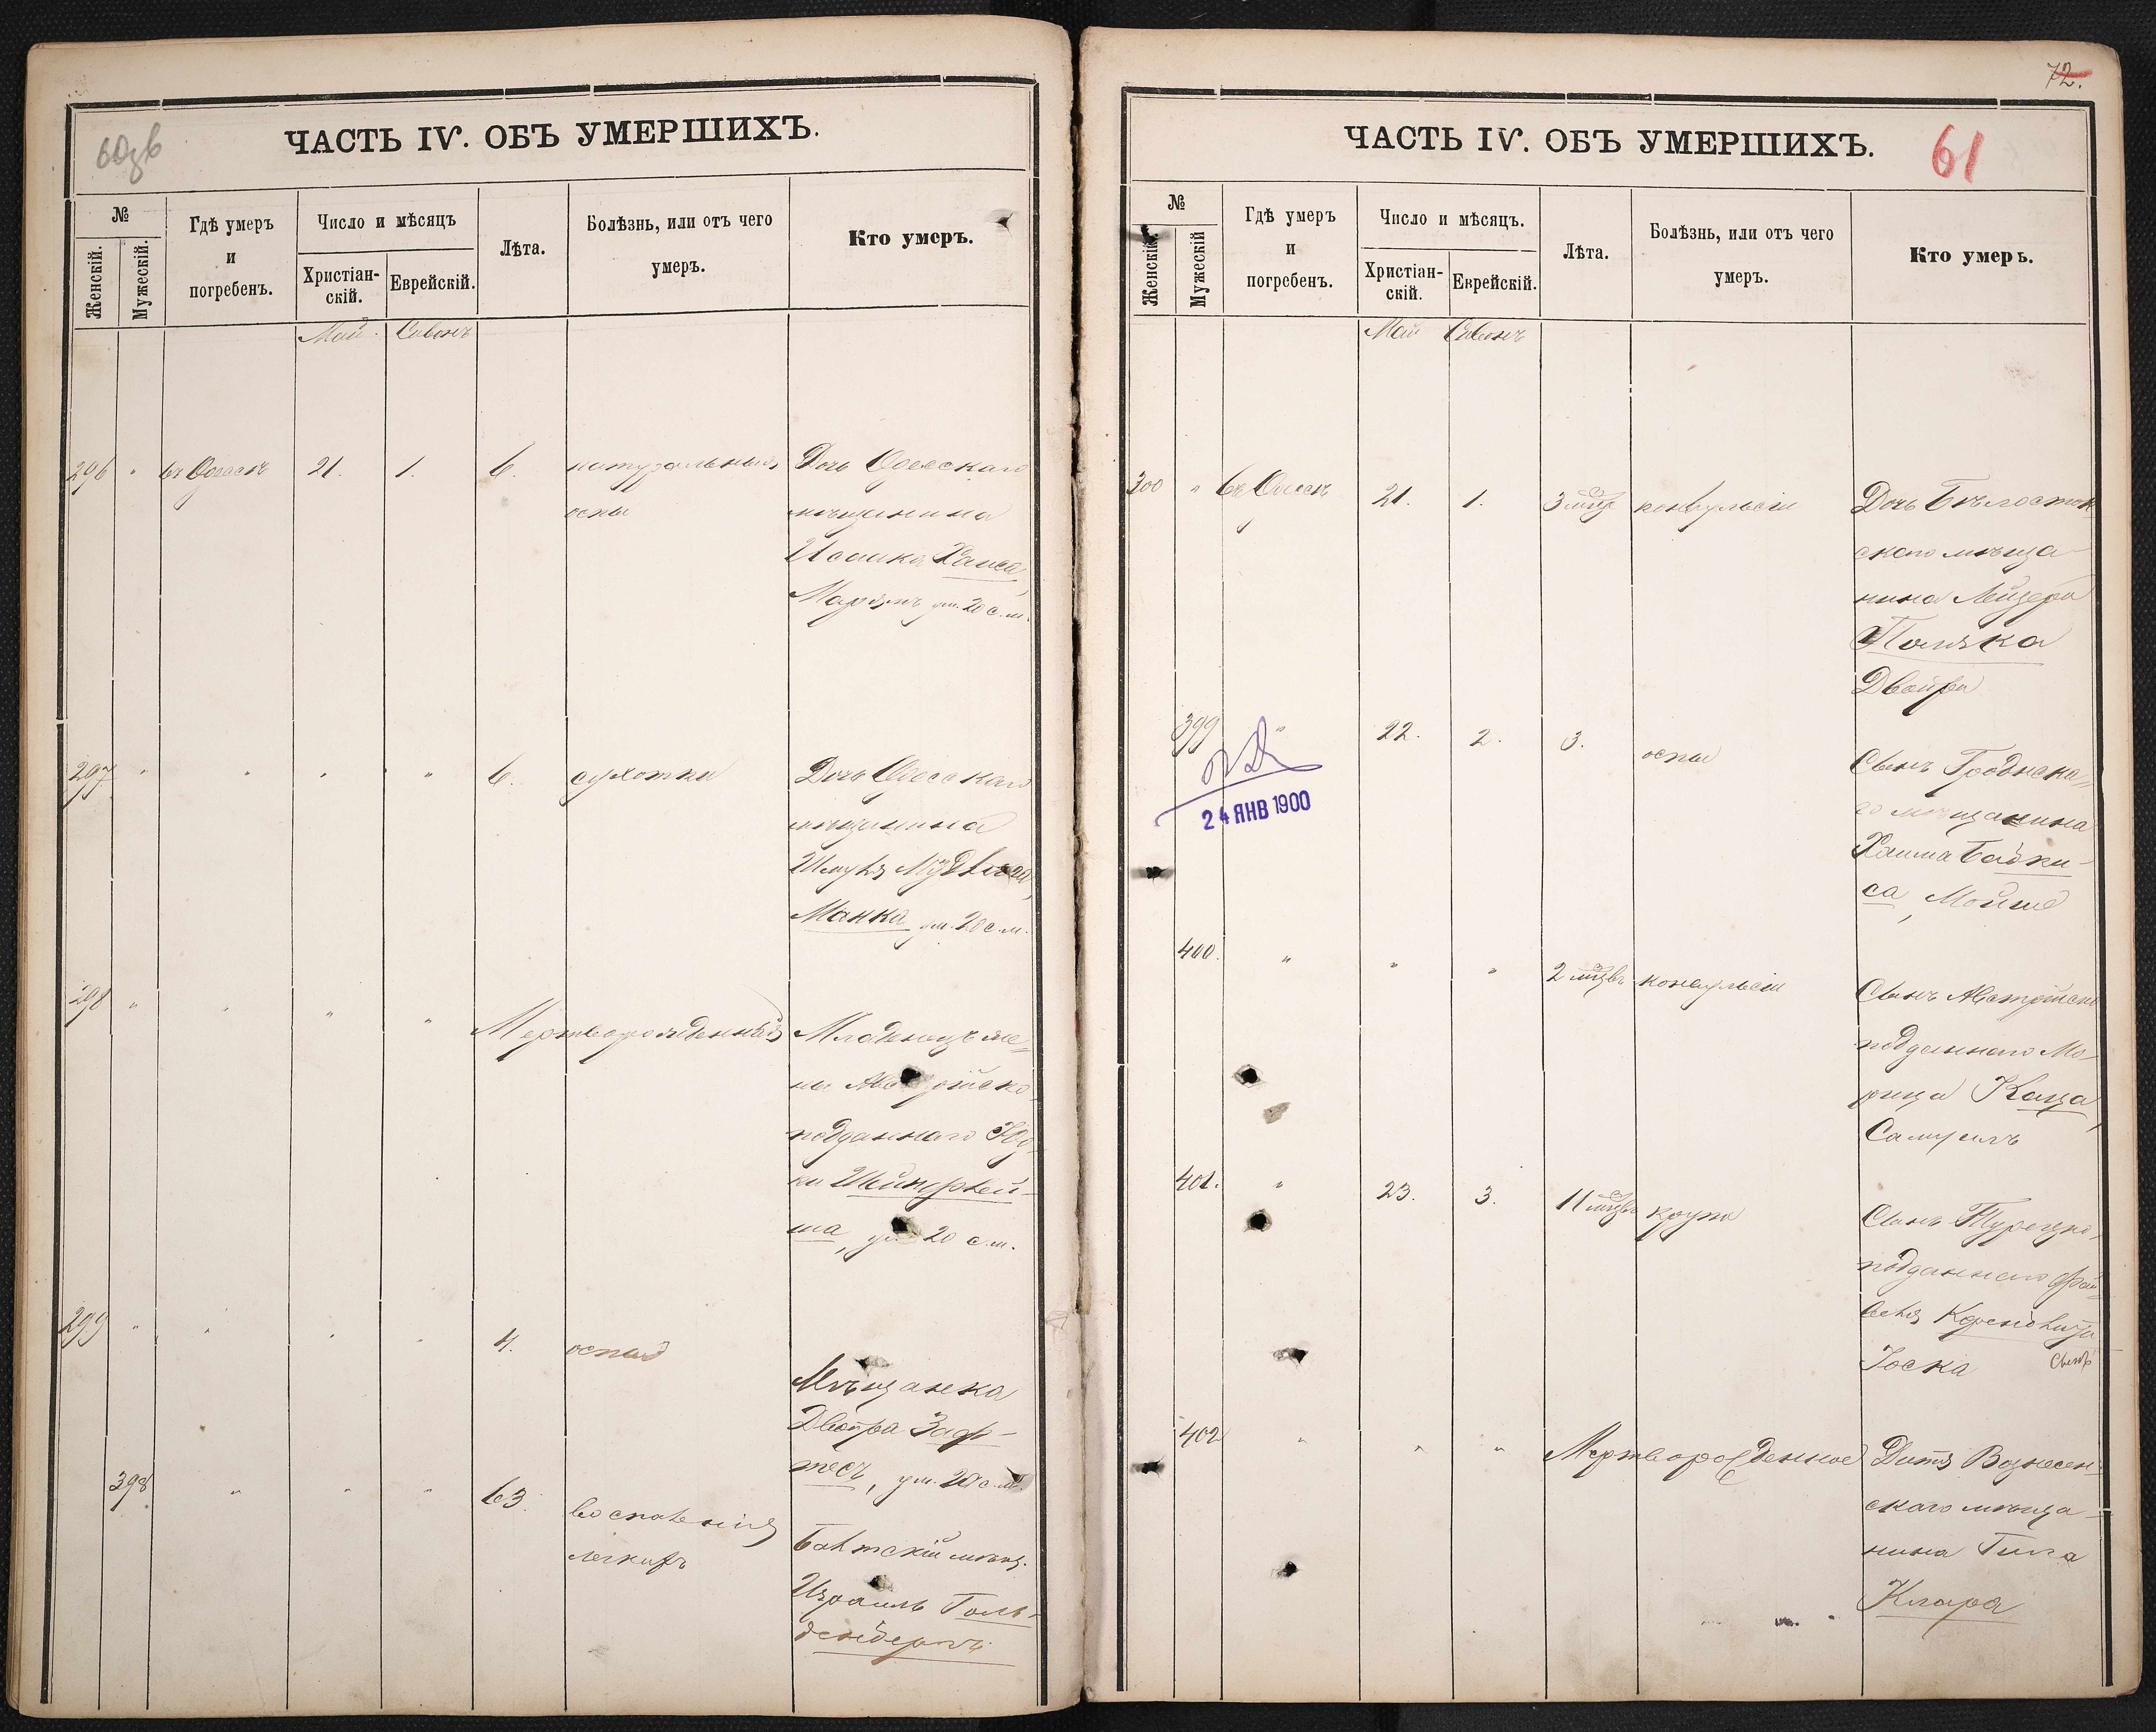 ЧАСТЬ IV. ОБЪ УМЕРШИХЪ.
№
Женскій.
Мужескій.
Гдѣ умеръ
и
погребенъ.
Число и мѣсяцъ
Христіан-
скій.
Еврейскій.
Лѣта.
Болѣзнь, или отъ чего
умеръ.
Кто умеръ.
Май Сивонъ
296 " въ Одессѣ 21. 1. 6. натуральныя Дочь Одесскаго
оспы мѣщанина
Исаака
ум. 20 с.м.
297 " " " " 6. сухотки Дочь Одесскаго
мѣщанина
Шмуля
Манка ум. 20 с.м.
298 " " " " Мертворожденный Младенецъ же-
ны Австрійско
подданнаго Юд-
ки
ша, ум 20 с.м.
299 " " " " 4. оспы
Мѣщанка
Двойра
ум. 20 с.м.
398 " " " 63. воспаленія
легкихъ
Балтскій мѣщ.
Израиль Голь-
денбергъ
ЧАСТЬ IV. ОБЪ УМЕРШИХЪ.
72.
61
№
Женскій.
Мужескій
Гдѣ умеръ
и
погребенъ.
Число и мѣсяцъ.
Христіан-
скій.
Еврейскій.
Лѣта.
Болѣзнь, или отъ чего
умеръ.
Кто умеръ.
Май Сивонъ
300 " въ Одессѣ 21. 1. 3 мѣс конвульсіи Дочь Бѣлосток
скаго мѣща-
нина Лейзера
Поляка
Двойра
399 " 22. 2. 3. оспы
Сынъ Гродненска-
го мѣщанина
Хаима
са, Мойше
24 ЯНВ 1900
400. " " " 2 мсцвъ конвульсіи
Сынъ Австрійско
подданнаго Мо-
рица Каца,
Самуилъ
401. " 23. 3. 11 мсцвъ крупа
Сынъ Турецко-
подданнаго
Іоска
402 " " " Мертворожденное Дитя Вознесен-
скаго мѣща-
нина
Клара